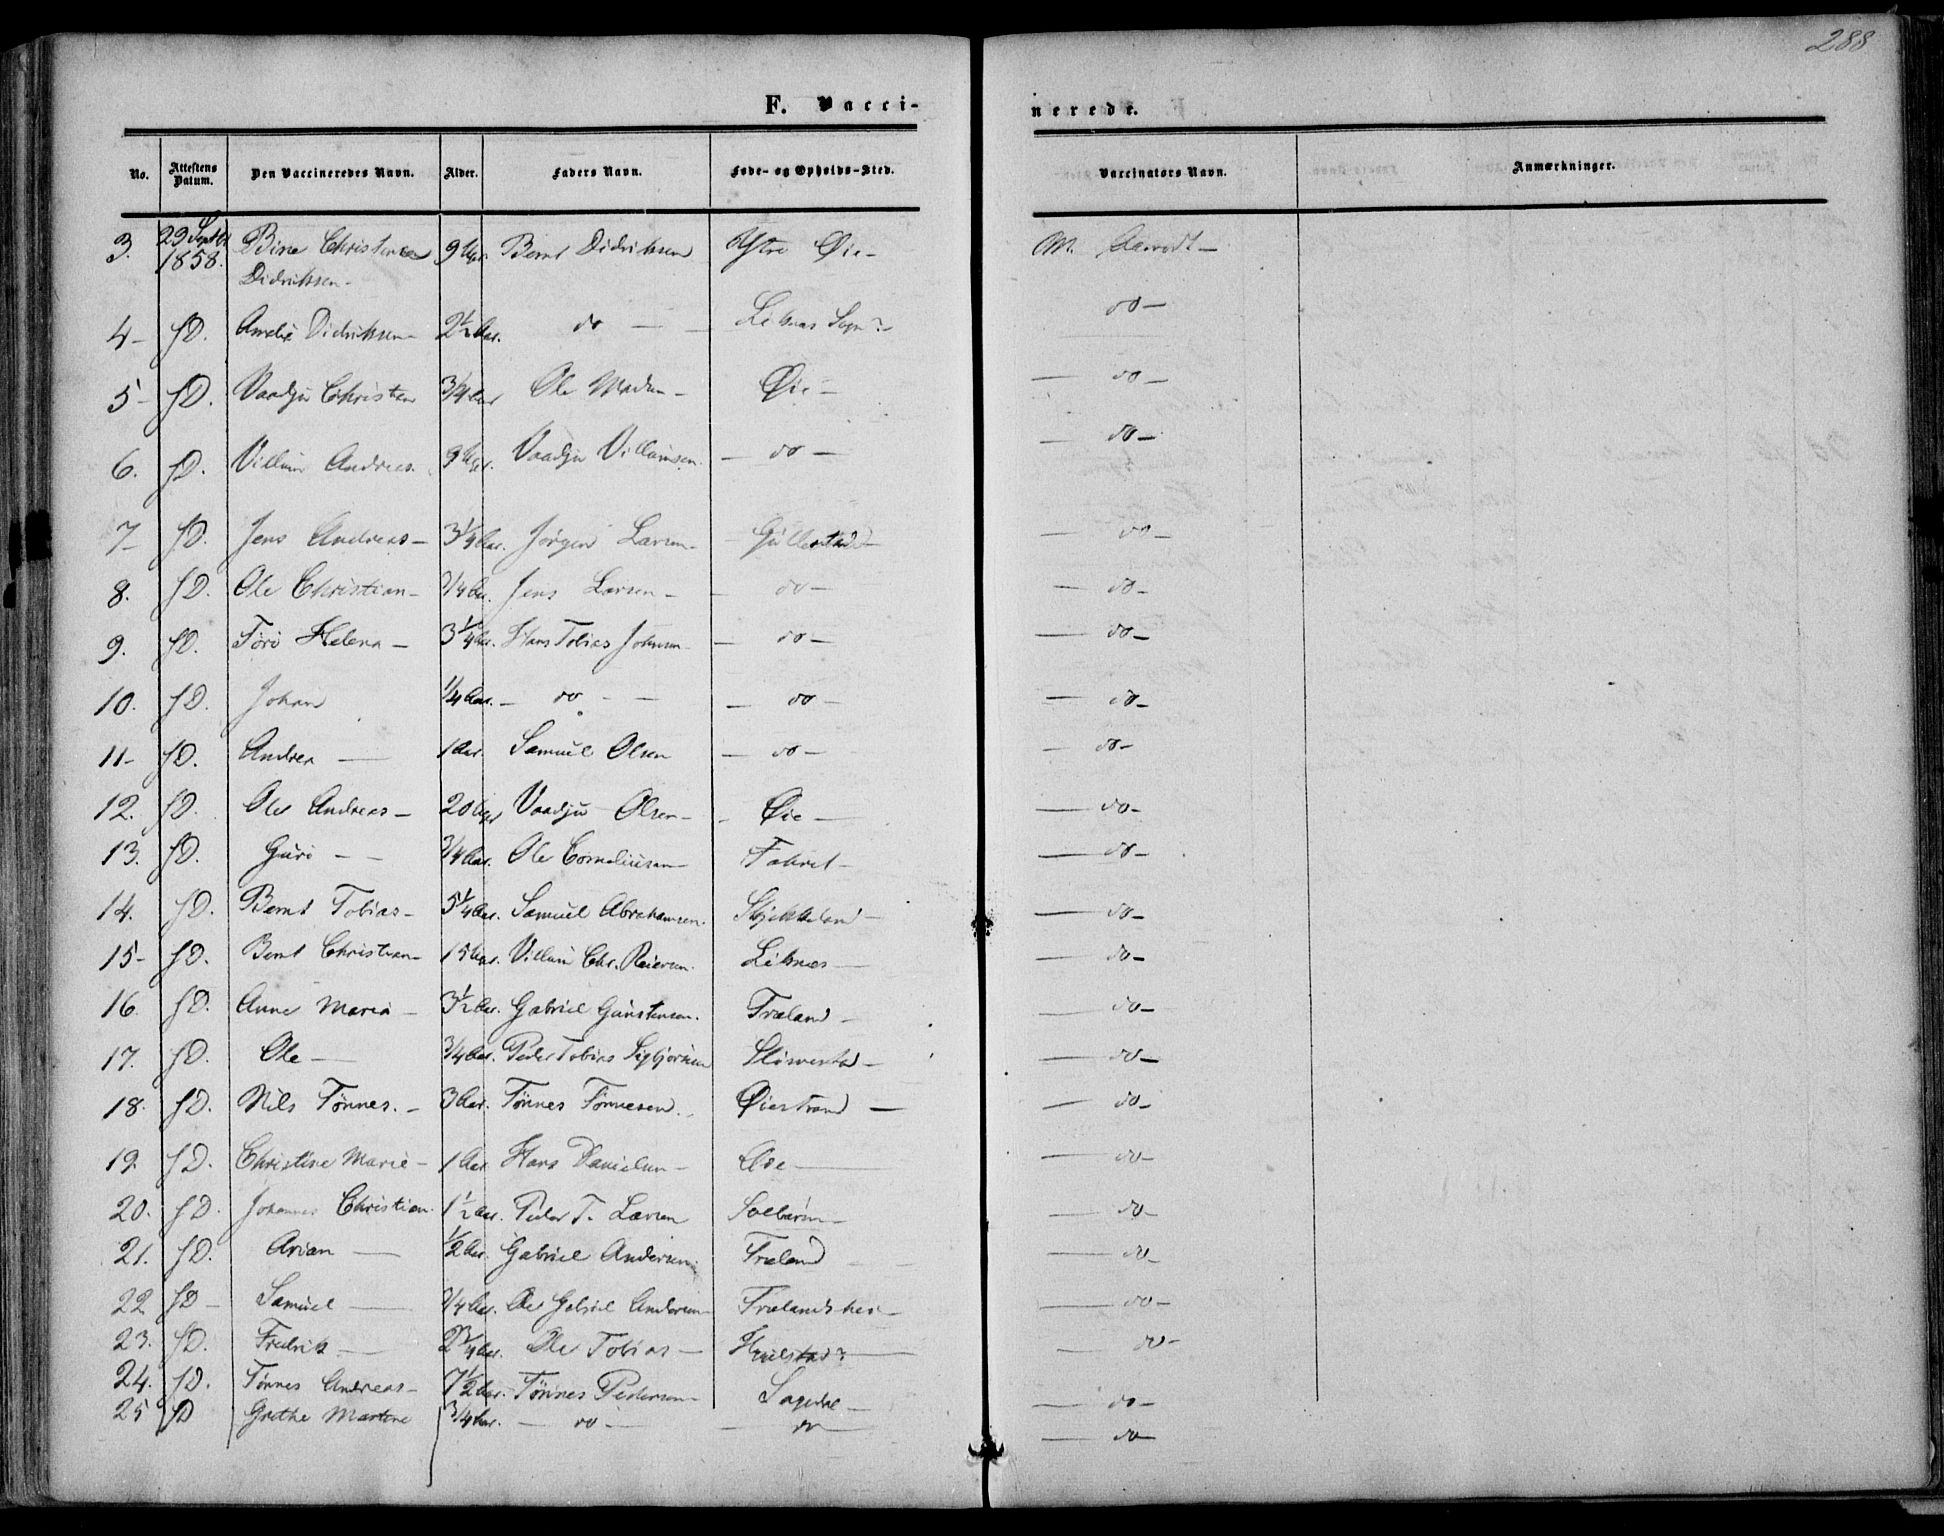 288
F. Vacci-
nerede.
No. Attestens Datum. Den Vaccineredes Navn. Alder. Faders Navn. Føde- og Opholds-Sted. Vaccinators Navn. Anmærkninger.
3. 29 Septbr 1858. Christine 9 Ugr. Bernt Didriksen Ytre Øie - M.
Didriksen -
4 - s.D. Didriksen - 2½ Aar. do - Liknes Sogn? - do -
5 - s.D. Vaadju Christian 3/4 Aar Ole - Øie - - do -
6. s.D. Villum Andreas. 9 Ugr. Vaadju Villumsen. - do - - do -
7 - s.D. Jens Andreas - 3¼ Aar. Jørgen Larsen - Gullestad - - do -
8. s.D. Ole Christian - 3/4 Aar. Jens Larsen - - do - - do -
9. s.D. Helena - 3¼ Aar. Hans Tobias Johnsen - - do - - do -
10. s.D. Johan ¼ Aar. - do - - - do - - do -
11 - s.D. Andrea - 1 Aar. Samuel Olsen - do - - do -
12. s.D. Ole Andreas - 20 Uger Vaadju Olsen - - Øie - - do -
13. s.D. Guri - - 3/4 Aar. Ole Corneliusen - - do -
14. s.D. Bernt Tobias - 5¼ Aar. Samuel Abrahamsen. - do -
15 - s.D. Bernt Christian - Villum Chr. Reiersen. Liknes - - do -
16. s.D. Anne Maria - 3½ Aar. Gabriel Gunstensen. Træland - - do -
17. s.D. Ole - 3/4 Aar. Peder Tobias Sigbjørnsen - do -
18. s.D. Nils Tønnes. - 3 Aar. Tønnes Tønnesen. Øiestrand - - do -
19. s.D. Christine Marie - 1 Aar Hans Danielsen - Øie - - do -
20. s.D. Johannes Christian. 1½ Aar. Peder T. Larsen - do -
21. s.D. Arian - ½ Aar. Gabriel Andersen. Træland - do -
22 s.D - Samuel - 3/4 Aar. Ole Gabriel Andersen - - do -
23. s.D. Fredrik - 2¾ Aar. Ole Tobias - - do -
24. s.D. Tønnes Andreas - 7½ Aar. Tønnes Pedersen - - do -
25 s.D Grethe Martine 3/4 Aar. - do - - do - do -